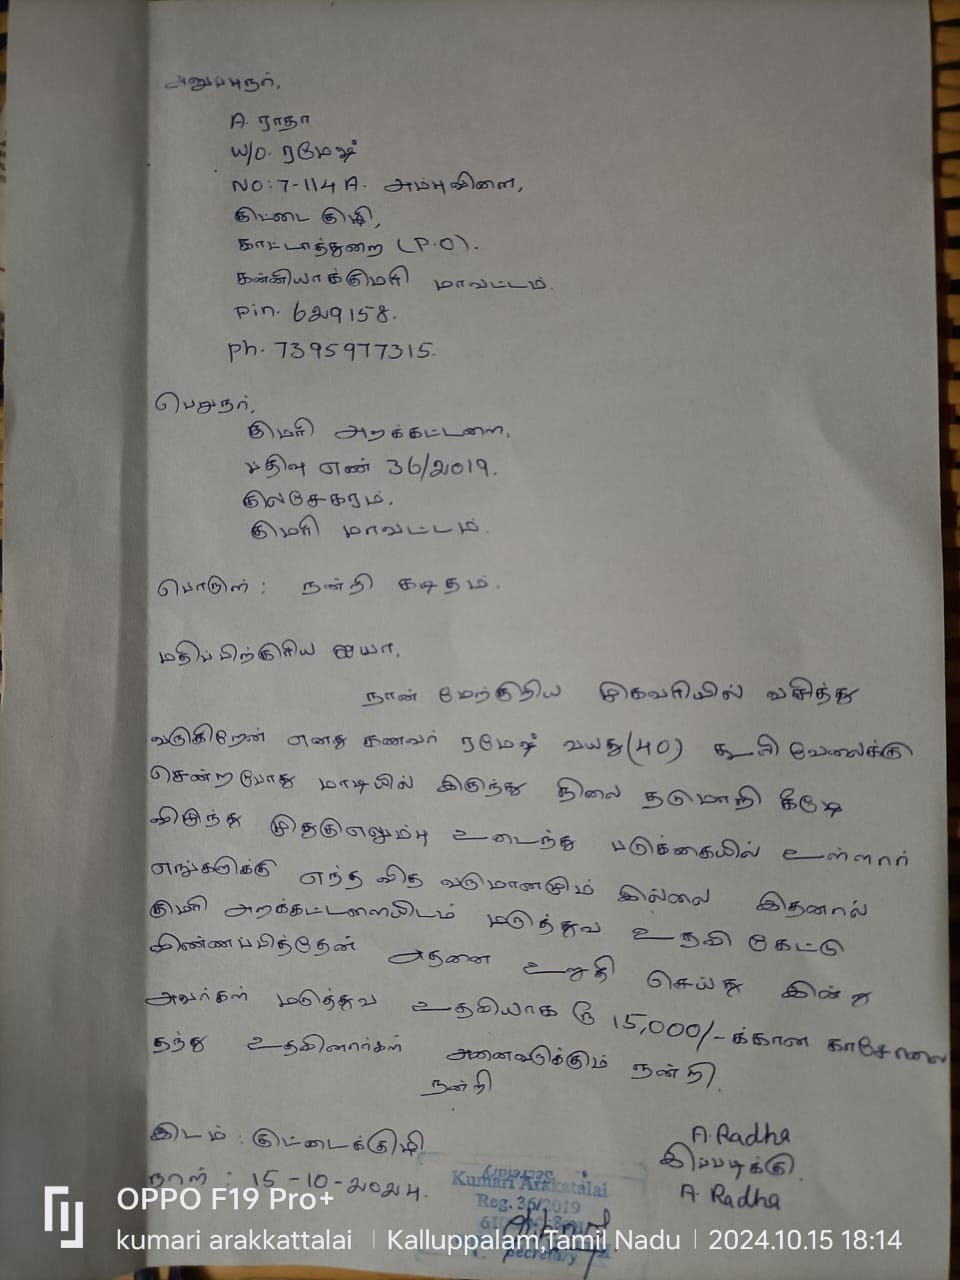 அனுப்புநர்,
A. ராதா
W/O. ரமேஷ்
NO: 7-114 A. அம்புவிளை,
குட்டை குழி,
காட்டாத்துறை (P.O).
கன்னியாக்குமரி மாவட்டம்.
Pin. 629158.
Ph. 7395977315.
பெறுநர்,
குமரி அறக்கட்டளை,
பதிவு எண் 36/2019.
குலசேகரம்.
குமரி மாவட்டம்.
பொருள் : நன்றி கடிதம்.
மதிப்பிற்குரிய ஐயா,
நான் மேற்குறிய முகவரியில் வசித்து
வருகிறேன் எனது கணவர் ரமேஷ் வயது (40) கூலி வேலைக்கு
சென்ற போது மாடியில் இருந்து நிலை தடுமாறி கீழே
விழுந்து முதுகுஎலும்பு உடைந்து படுக்கையில் உள்ளார்
எங்களுக்கு எந்த வித வருமானமும் இல்லை இதனால்
குமரி அறக்கட்டளையிடம் மருத்துவ உதவி கேட்டு
விண்ணப்பித்தேன் அதனை உறுதி செய்து இன்று
அவர்கள் மருத்துவ உதவியாக ரூ 15,000/- க்கான காசோலை
தந்து உதவினார்கள் அனைவருக்கும் நன்றி.
நன்றி
இடம் : குட்டைக்குழி
நாள் : 15-10-2024.
A. Radha
இப்படிக்கு
A. Radha
Kumari Arakatalai
Reg. 36/2019
Secretary
OPPO F19 Pro+
kumari arakkattalai | Kalluppalam,Tamil Nadu | 2024.10.15 18:14